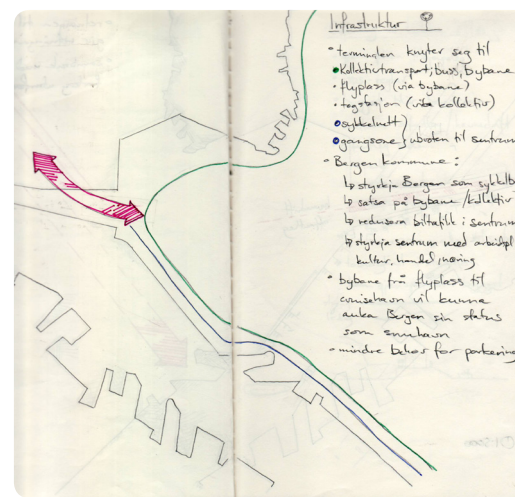 Infrastruktur
• terminalen knyter seg til
• Kollektivtransport; buss, bybane
• flyplass (via bybane)
• togstasjon (via kollektiv)
• sykkelnett
• gangsone } ubroten til sentrum
• Bergen kommune :
↳ styrkja Bergen som sykkelb
↳ satsa på bybane / kollektiv
↳ redusera biltrafikk i sentrum
↳ styrkja sentrum med arbeidpl
kultur, handel, næring
• bybane frå flyplass til
cruisehavn vil kunna
auka Bergen sin status
som snuhavn
• mindre behov for parkering